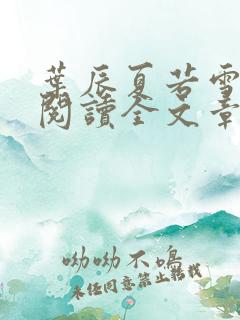 葉辰夏若雪
閱讀全文章
呦呦不鳴
未经同意禁止转载